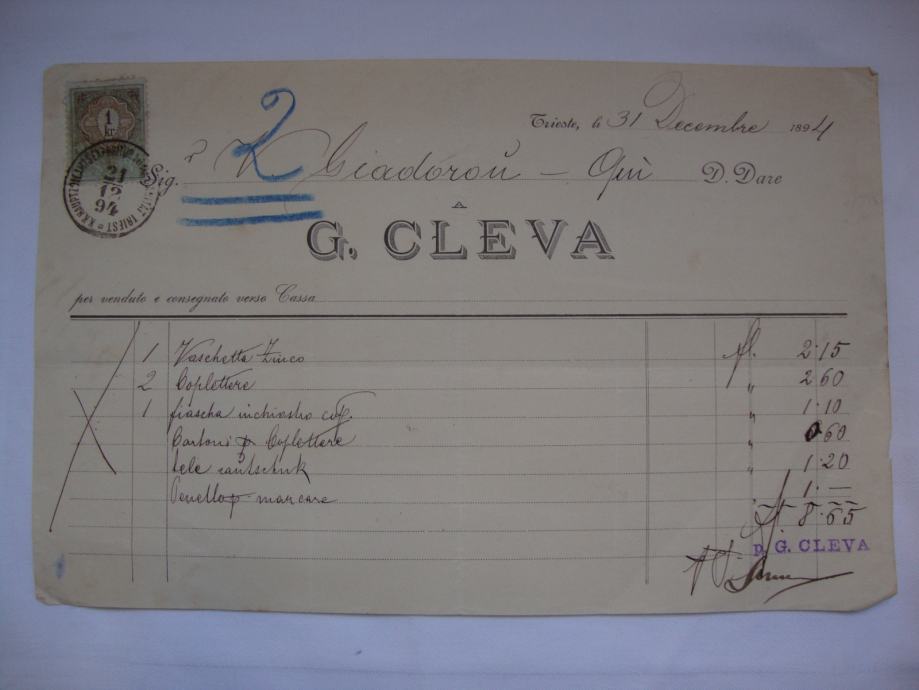 1
kr.
Trieste, li 31 Decembre 1894
2
Sig. Giadorou - Qui D. Dare
21
12
94
TRIEST
A
G. CLEVA
per venduto e consegnato verso Cassa
1 Vaschetta Zinco fl. 2.15
2 Coplettere " 2 60
1 fiascha inchiostro cop. " 1.10
Cartoni p Coplettere " 0.60
tele cautschuk " 1.20
Penello p marcare 1.—
fl. 8.65
p. G. CLEVA